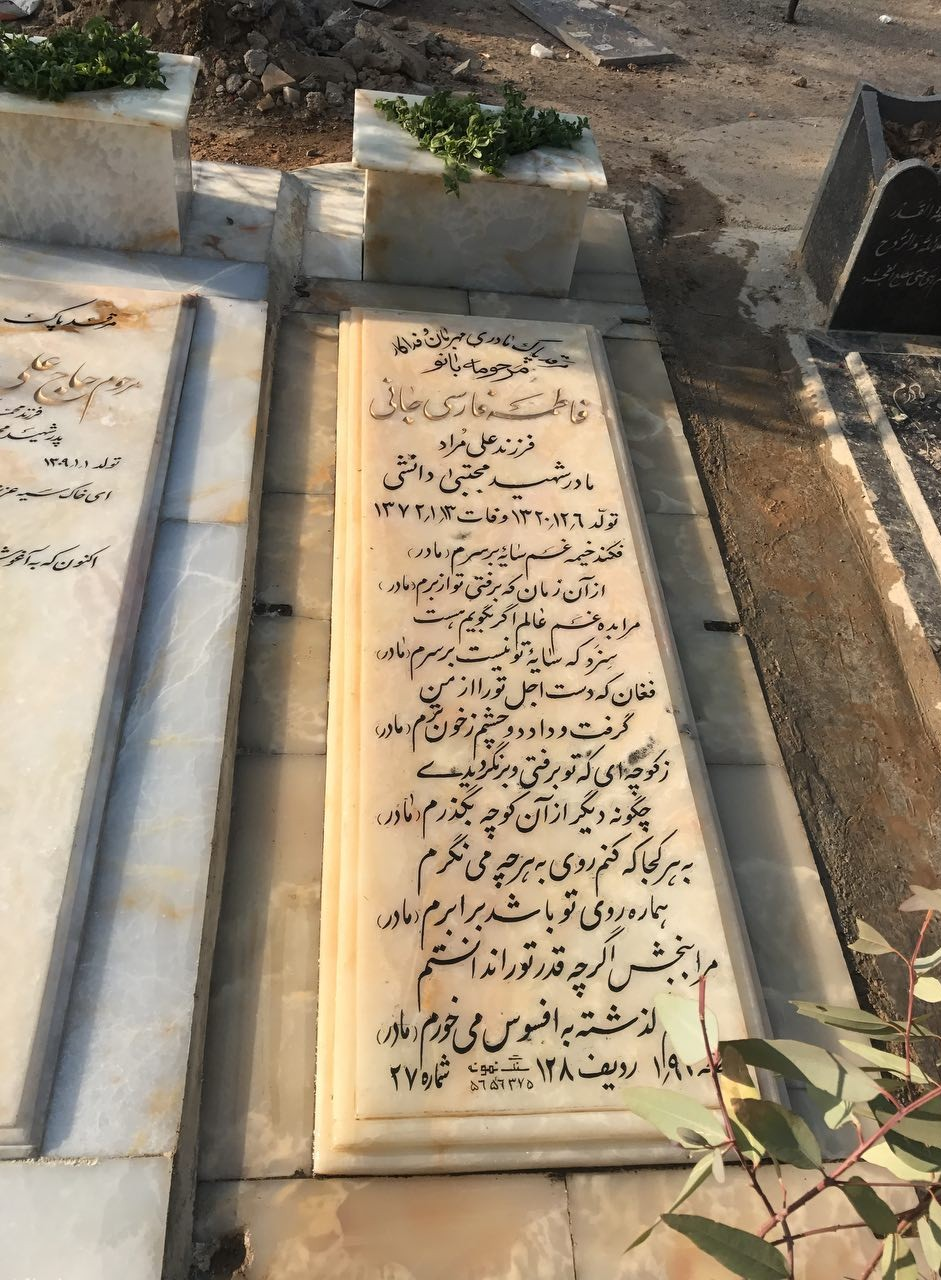 مرقد پاک مادری مهربان و فداکار
مرحومه بانو
فاطمه فارسی جانی
فرزند علی مراد
مادر شهید مجتبی دانشی
تولد ۱۳۲۰.۱۲.۶ وفات ۱۳۷۲.۱.۱۳
فکند خیمه غم سایهٔ بر سرم (مادر)
از آن زمان که برفتی تو از برم (مادر)
مرا بده غم عالم اگر بگویم هست
سزد که سایهٔ تو نیست بر سرم (مادر)
فغان که دست اجل تو را از من
گرفت و داد دو چشم ز خون ترم (مادر)
ز کوچه ای که تو برفتی و برنگردیدی
چگونه دیگر از آن کوچه بگذرم (مادر)
به هر کجا که کنم روی به هر چه می نگرم
هماره روی تو باشد برابرم (مادر)
مرا ببخش اگر چه قدر تو را ندانستم
گذشته به افسوس می خورم (مادر)
۹۰.۱ ردیف ۱۲۸ سنگ نمونه ۵۶۵۶۳۷۵ شماره ۲۷
مرقد پاک
مرحوم حاج علی
فرزند
پدر شهید
تولد ۱۳۰۹.۱.۱
ای خاک سیه
اکنون که به آغوش